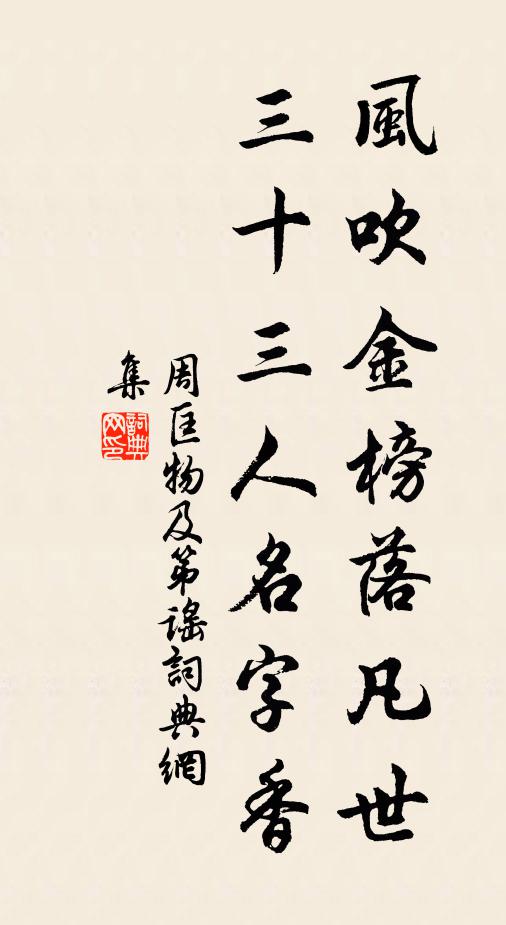 風吹金榜落凡世
三十三人名字香
周匡物及第謠詞典網
集
詞典
網印